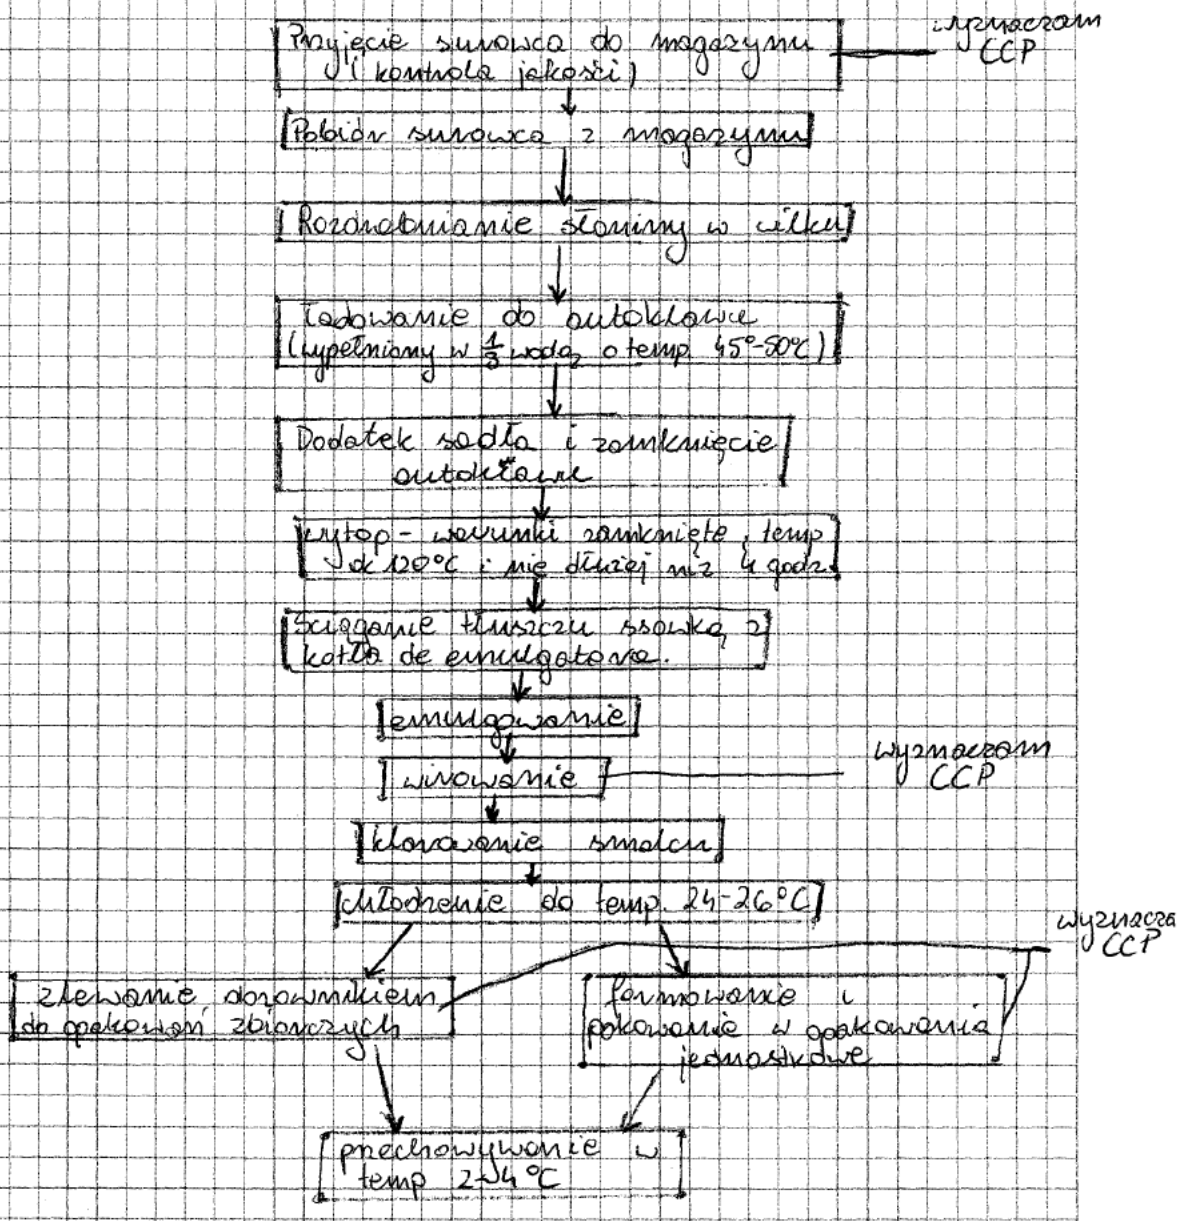 Przyjęcie surowca do magazynu
(i kontrola jakości)
wyznaczam
CCP
Pobiór surowca z magazynu
Rozdrabnianie słoniny w wilku
Ładowanie do autoklawu
(wypełniony w 1/3 wodą o temp. 45°-50°C)
Dodatek sadła i zamknięcie
autokławu
wytop - warunki zamknięte, temp
ok 120°C i nie dłużej niż 4 godz.
Ściąganie tłuszczu ssawką z
kotła do emulgatora.
emulgowanie
wirowanie
wyznaczam
CCP
klarowanie smalcu
chłodzenie do temp. 24-26°C
wyznacza
CCP
zlewanie dozownikiem
do opakowań zbiorczych
formowanie i
pakowanie w opakowania
jednostkowe
przechowywanie w
temp 2-4°C